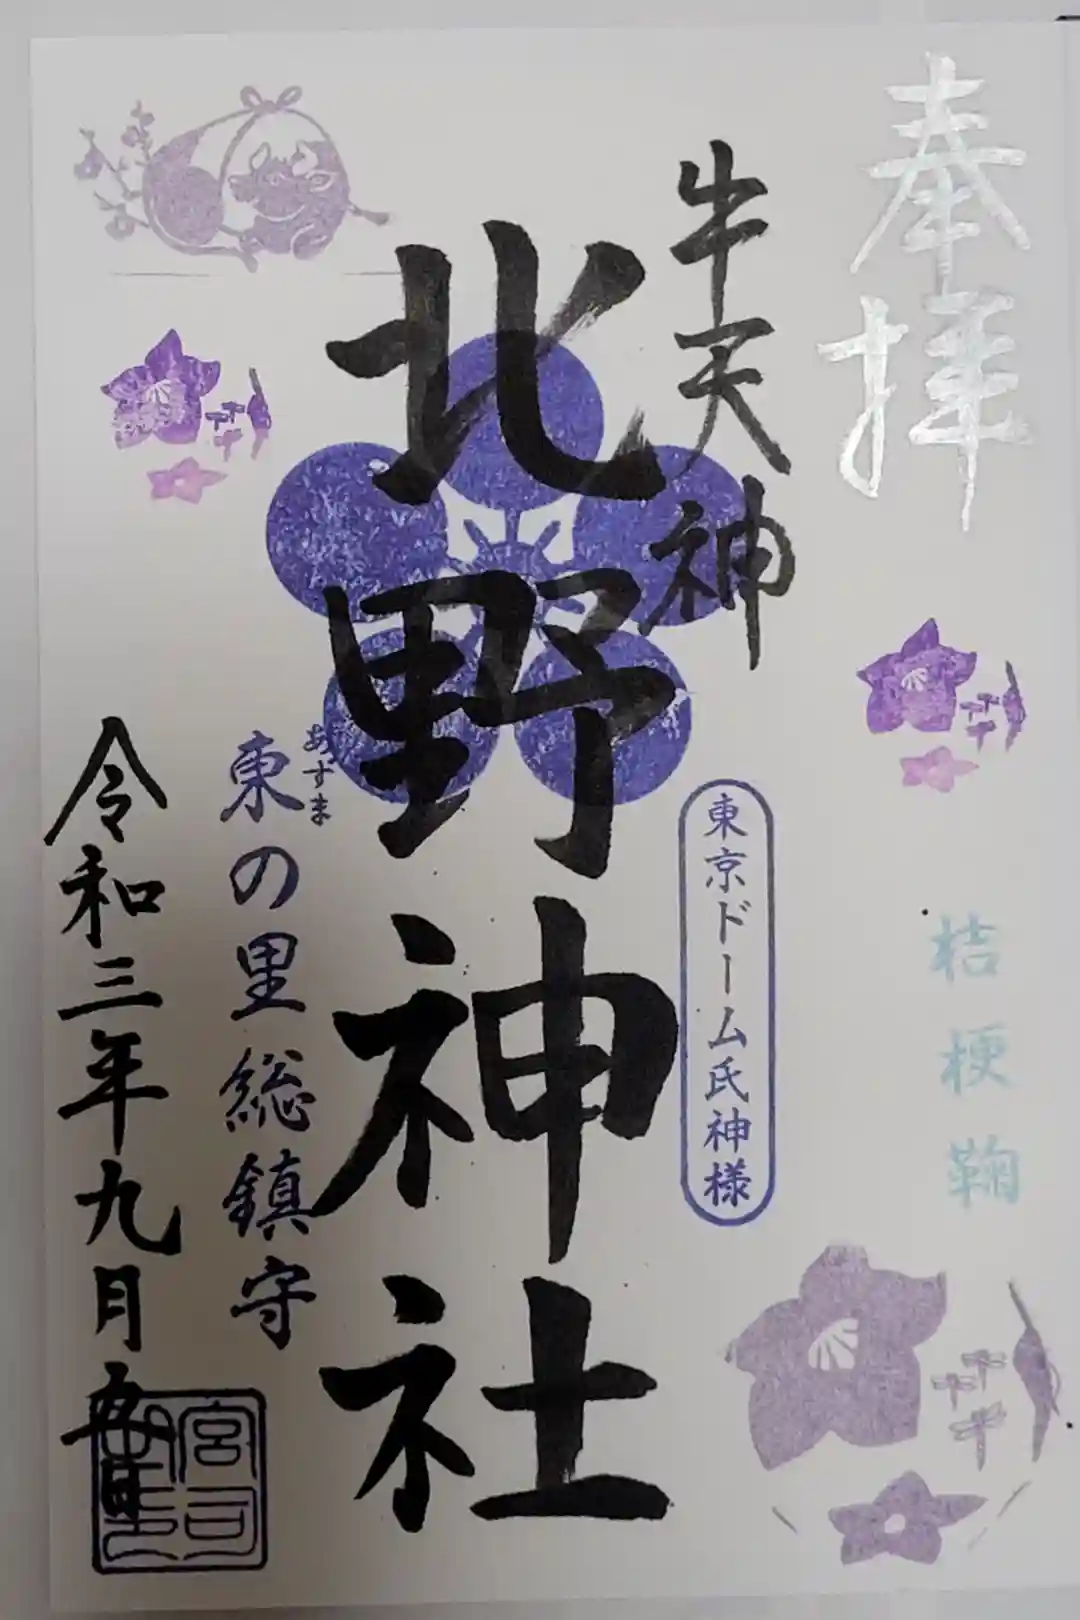 奉拝
桔梗鞠
牛天神
東京ドーム氏神様
北野神社
あずま
東の里総鎮守
令和三年九月五日
宮司